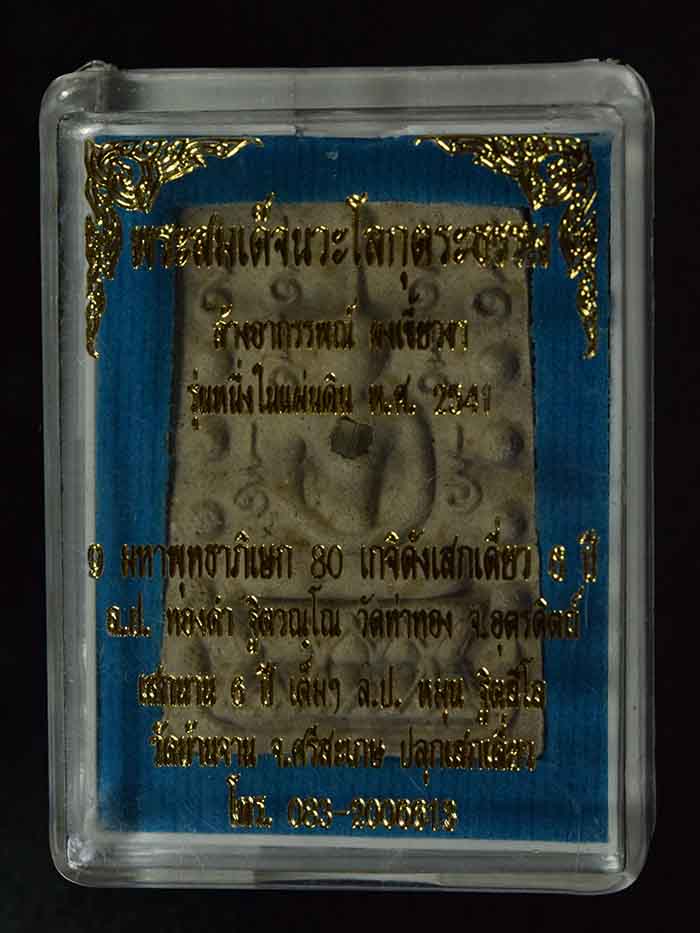 พระสมเด็จนวะโลกุตระธรรม
ล้างอาถรรพณ์ ผงเขี้ยวงา
รุ่นหนึ่งในแผ่นดิน พ.ศ. 2541
9 มหาพุทธาภิเษก 80 เกจิดังเสกเดี่ยว 6 ปี
ล.ป. ทองดำ ฐิตวณฺโณ วัดท่าทอง จ.อุตรดิตถ์
เสกนาน 6 ปี เต็มๆ ล.ป. หมุน ฐิตสีโล
วัดบ้านจาน จ.ศรีสะเกษ ปลุกเสกเดี่ยว
โทร.